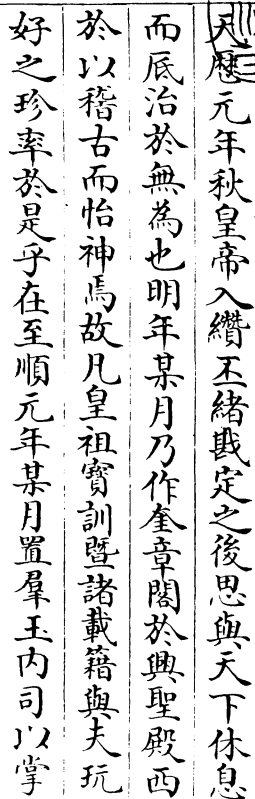 天曆元年秋皇帝入纘丕緒戡定之後思與天下休息
而厎治於無為也明年某月乃作奎章閣於興聖殿西
於以稽古而怡神焉故凡皇祖寶訓暨諸載籍與夫玩
好之珍率於是乎在至順元年某月置羣玉内司以掌